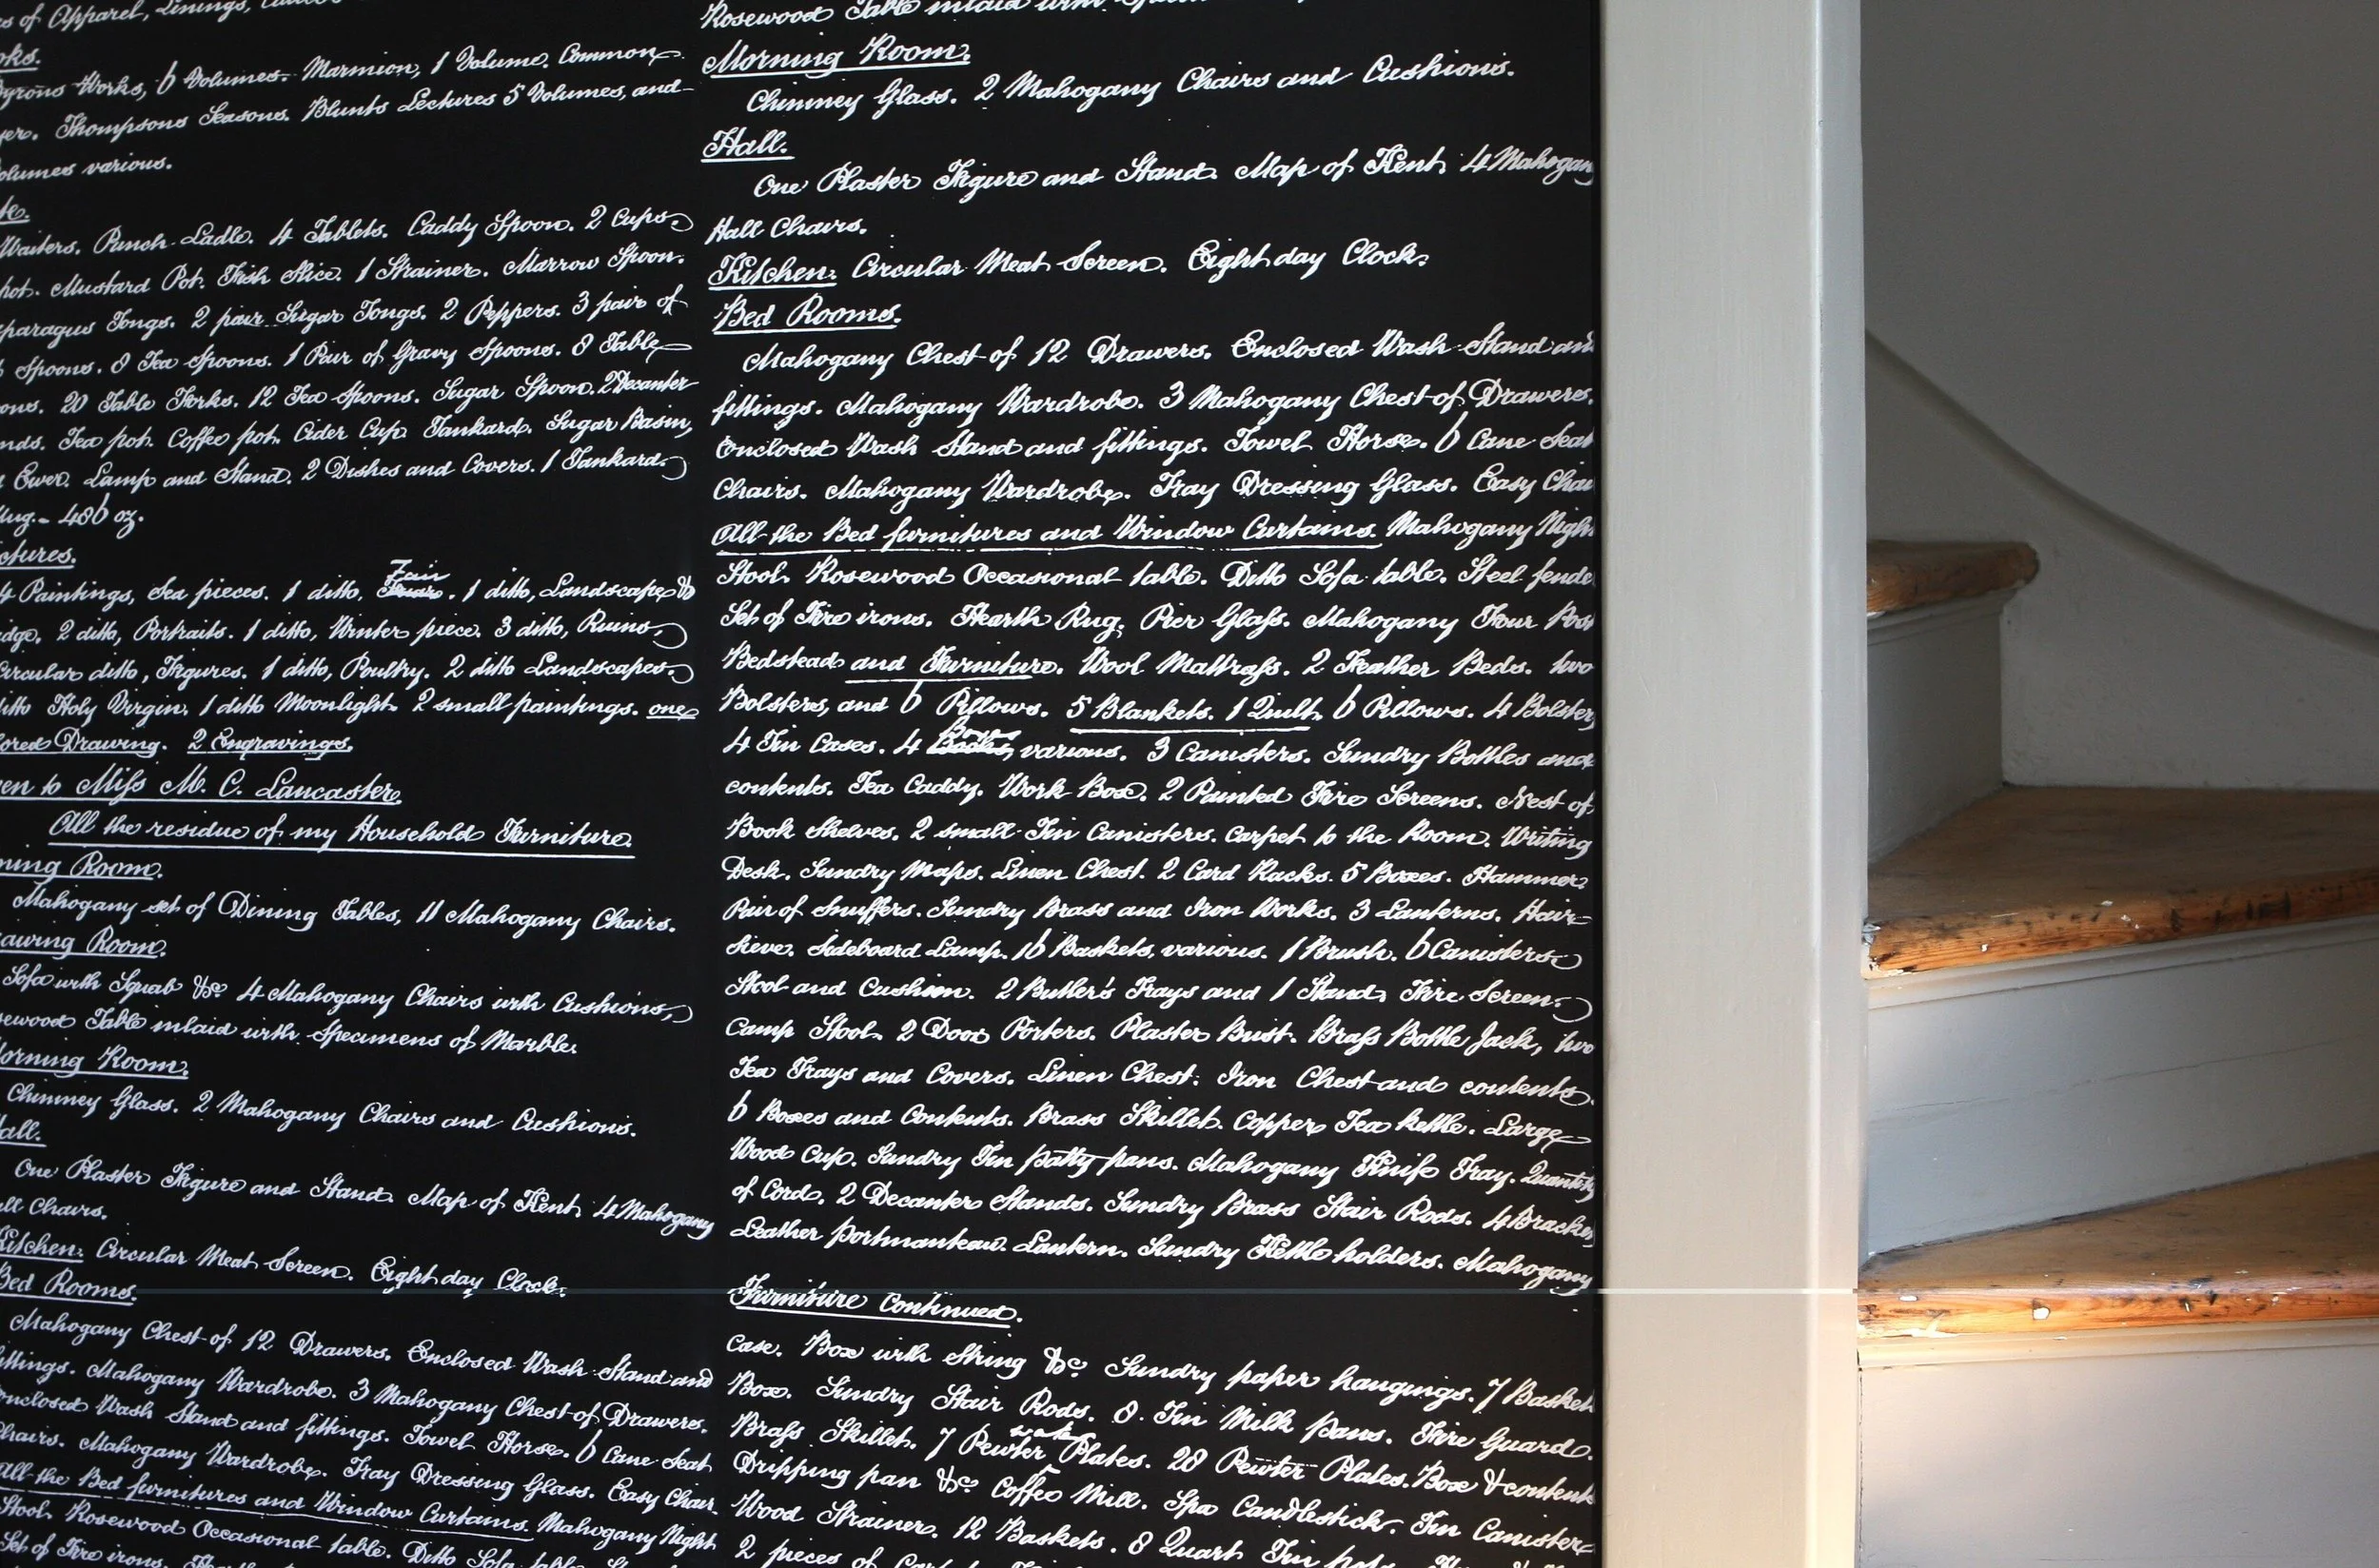 s of Apparel, Linings,
ks.
Byrons Works, 6 Volumes. Marmion, 1 Volume. Common
er. Thompsons Seasons. Blunts Lectures 5 Volumes, and
olumes various.
te.
Waiters. Punch Ladle. 4 Tablets. Caddy Spoon. 2 Cups.
pot. Mustard Pot. Fish Slice. 1 Strainer. Marrow Spoon.
sparagus Tongs. 2 pair Sugar Tongs. 2 Peppers. 3 pair of
Spoons. 8 Tea Spoons. 1 Pair of Gravy Spoons. 8 Table
ons. 20 Table Forks. 12 Tea Spoons. Sugar Spoon. 2 Decanter
nds. Tea pot. Coffee pot. Cider Cup. Tankard. Sugar Basin,
Ewer. Lamp and Stand. 2 Dishes and Covers. 1 Tankard.
ug. - 486 oz.
ctures.
4 Paintings, Sea pieces. 1 ditto, Fair. 1 ditto, Landscape &
idge. 2 ditto, Portraits. 1 ditto, Winter piece. 3 ditto, Ruins.
Circular ditto, Figures. 1 ditto, Poultry. 2 ditto Landscapes.
itto Holy Virgin. 1 ditto Moonlight. 2 small paintings. one
ored Drawing. 2 Engravings.
en to Miss M. C. Lancaster.
All the residue of my Household Furniture.
ning Room.
Mahogany set of Dining Tables, 11 Mahogany Chairs.
awing Room.
Sofa with Squab &c. 4 Mahogany Chairs with Cushions,
sewood Table inlaid with Specimens of Marble.
orning Room.
Chimney Glass. 2 Mahogany Chairs and Cushions.
all.
One Plaster Figure and Stand. Map of Kent. 4 Mahogany
ll Chairs.
Kitchen: Circular Meat Screen. Eight day Clock.
Bed Rooms.
Mahogany Chest of 12 Drawers. Enclosed Wash Stand and
ittings. Mahogany Wardrobe. 3 Mahogany Chest of Drawers.
nclosed Wash Stand and fittings. Towel Horse. 6 Cane Seat
Chairs. Mahogany Wardrobe. Tray Dressing Glass. Easy Chair.
All the Bed furnitures and Window Curtains. Mahogany Night
Stool. Rosewood Occasional table. Ditto Sofa table.
Set of Fire irons.
Rosewood Table inlaid with
Morning Room.
Chimney Glass. 2 Mahogany Chairs and Cushions.
Hall.
One Plaster Figure and Stand. Map of Kent. 4 Mahogan
Hall Chairs.
Kitchen: Circular Meat Screen. Eight day Clock.
Bed Rooms.
Mahogany Chest of 12 Drawers. Enclosed Wash Stand an
fittings. Mahogany Wardrobe. 3 Mahogany Chest of Drawers.
Enclosed Wash Stand and fittings. Towel Horse. 6 Cane Seat
Chairs. Mahogany Wardrobe. Tray Dressing Glass. Easy Chai
All the Bed furnitures and Window Curtains. Mahogany Nigh
Stool. Rosewood Occasional table. Ditto Sofa table. Steel fende
Set of Fire irons. Hearth Rug. Pier Glass. Mahogany Four Post
Bedstead and Furniture. Wool Mattrass. 2 Feather Beds. two
Bolsters, and 6 Pillows. 5 Blankets. 1 Quilt. 6 Pillows. 4 Bolster
4 Tin Cases. 4 Boxes various. 3 Canisters. Sundry Bottles and
contents. Tea Caddy. Work Box. 2 Painted Fire Screens. Nest of
Book Shelves. 2 small Tin Canisters. Carpet to the Room. Writing
Desk. Sundry Maps. Linen Chest. 2 Card Racks. 5 Boxes. Hammer
Pair of Snuffers. Sundry Brass and Iron Works. 3 Lanterns. Hair
Sieve. Sideboard Lamp. 16 Baskets, various. 1 Brush. 6 Canisters
Stool and Cushion. 2 Butler's Trays and 1 Stand, Fire Screen.
Camp Stool. 2 Door Porters. Plaster Bust. Brass Bottle Jack, two
Tea Trays and Covers. Linen Chest: Iron Chest and contents.
6 Boxes and Contents. Brass Skillet. Copper Tea kettle. Large
Wood Cup. Sundry Tin patty pans. Mahogany Knife Tray. Quantity
of Cord. 2 Decanter Stands. Sundry Brass Stair Rods. 4 Bracket
Leather portmanteau. Lantern. Sundry Kettle holders. Mahogany
Furniture Continued.
Case. Box with String &c. Sundry paper hangings. 7 Basket
Box. Sundry Stair Rods. 8. Tin Milk pans. Fire Guard.
Brass Skillet. 7 Pewter water Plates. 28 Pewter Plates. Box & content
Dripping pan &c. Coffee Mill. Spa Candlestick. Tin Canister
Wood Strainer. 12 Baskets. 8 Quart Tin pots.
2 pieces of